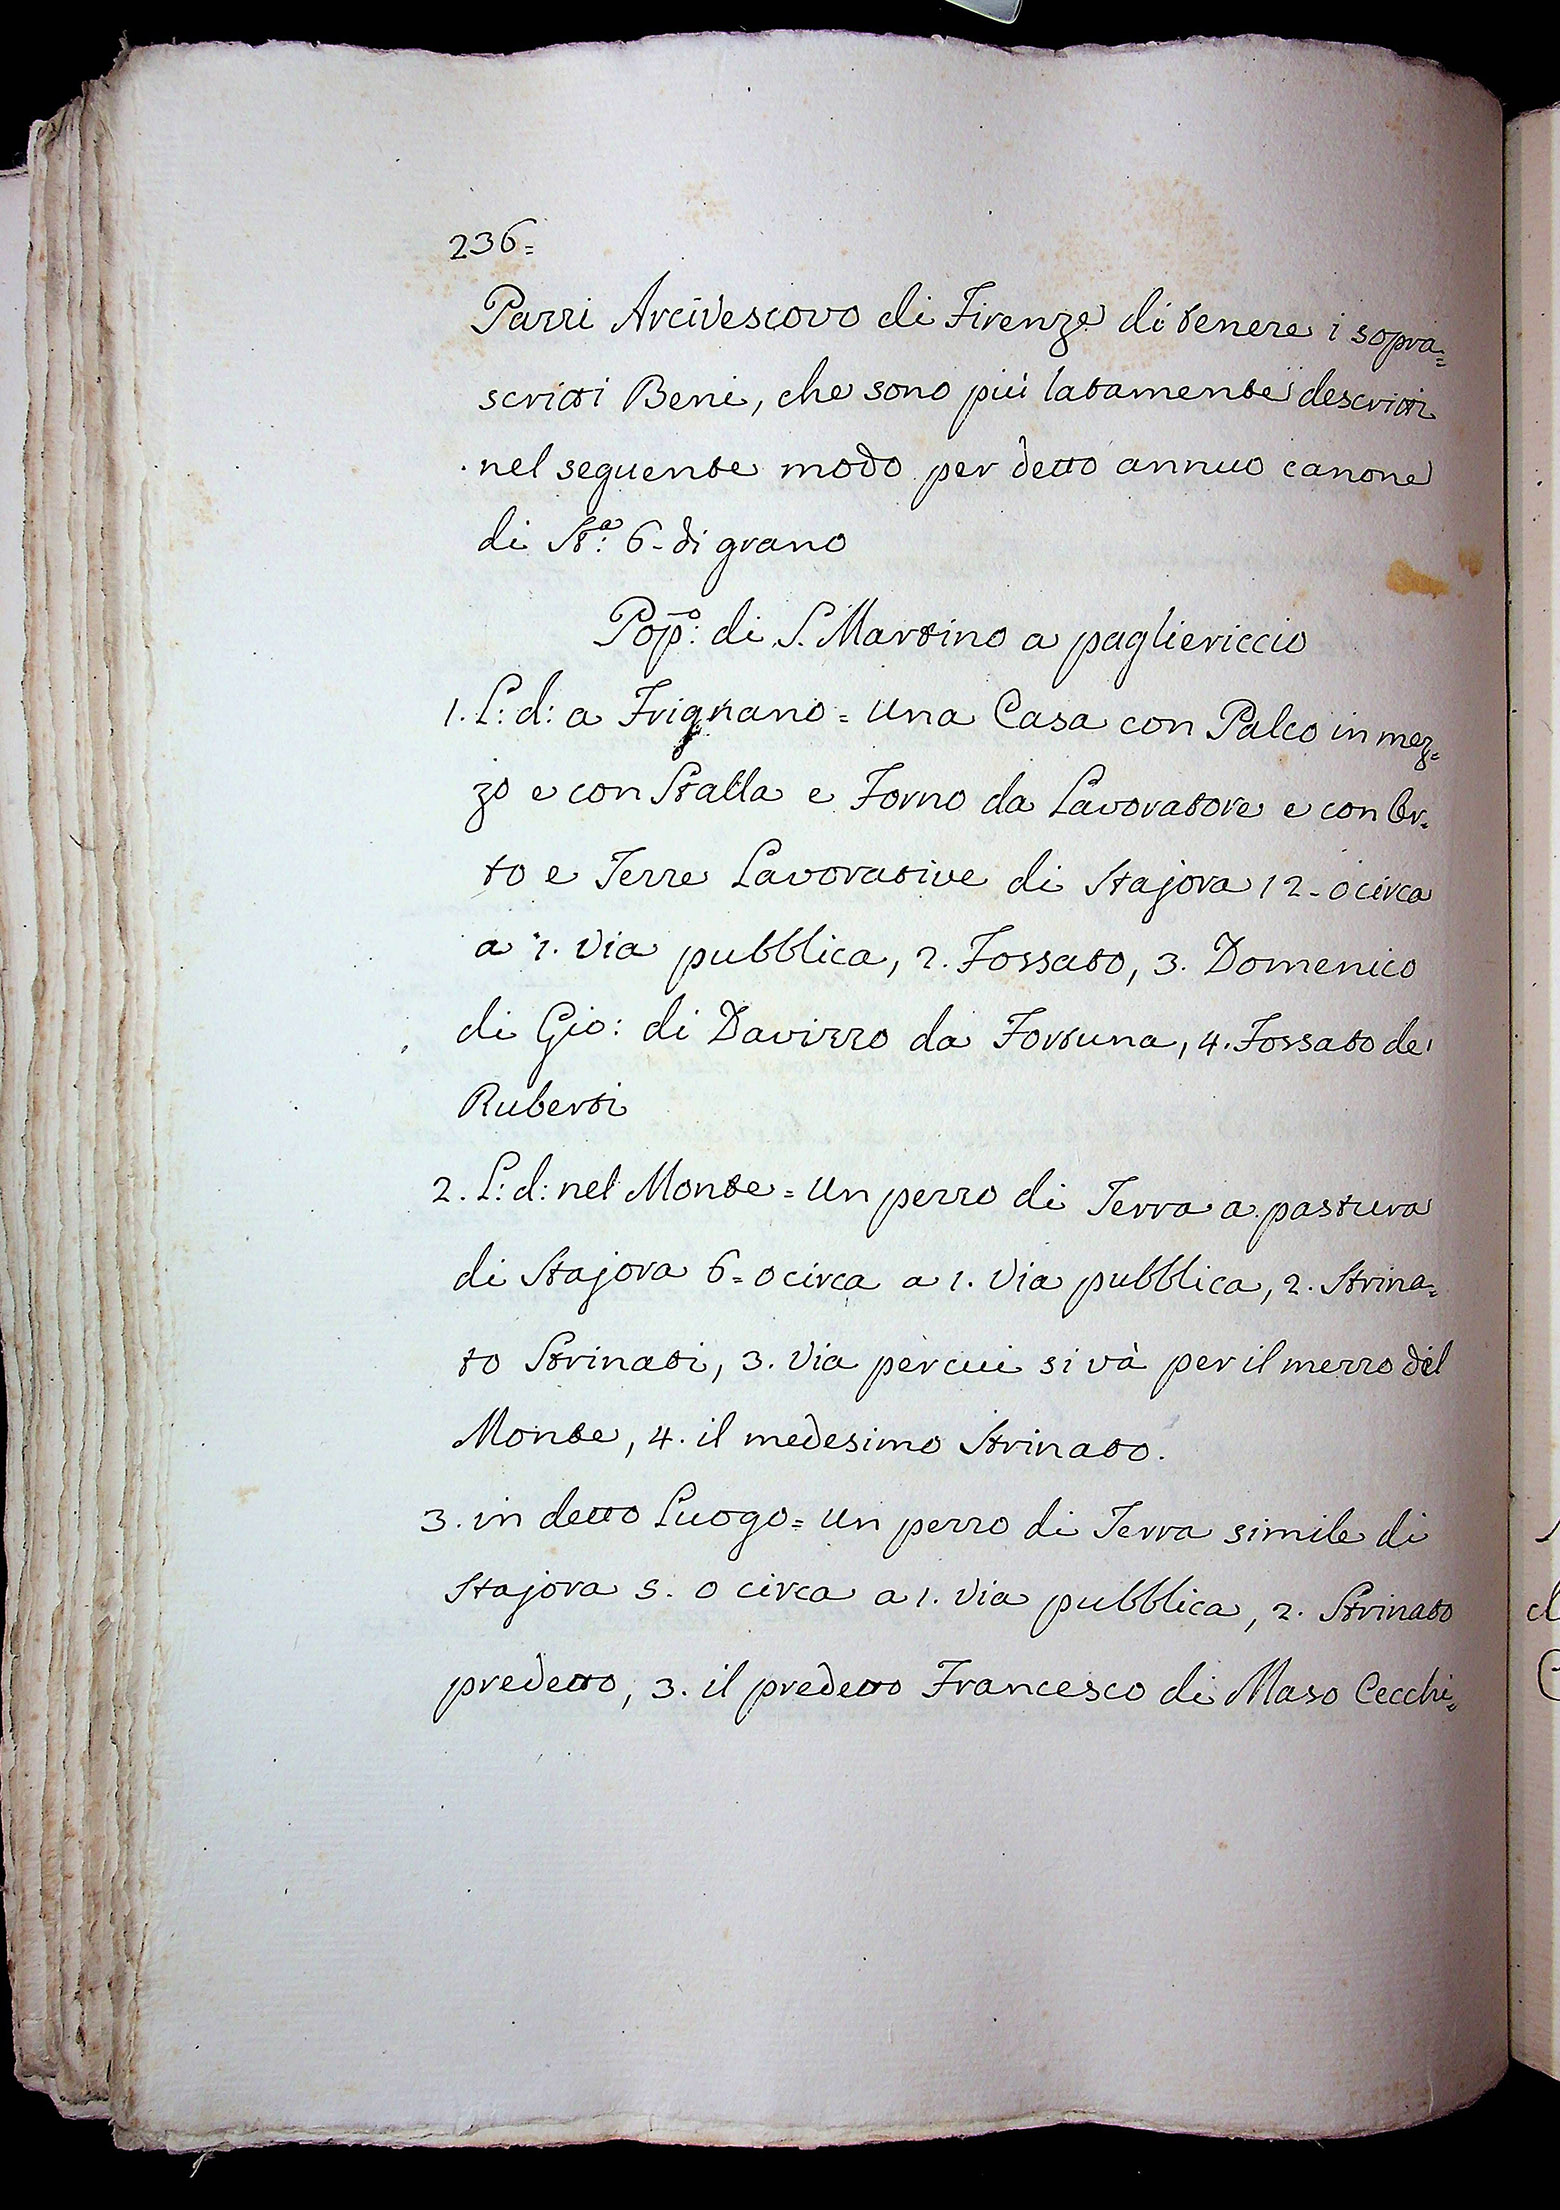 236=
Pazzi Arcivescovo di Firenze di tenere i sopra=
scritti Beni, che sono più latamente descritti
nel seguente modo per detto annuo canone
di Sta: 6- di grano
Popo: di S. Martino a pagliericcio
1. L: d: a Frignano = Una Casa con Palco in mez=
zo e con Stalla e Forno da Lavoratore e con Or=
to e Terre Lavorative di Stajora 12-0 circa
a 1. Via pubblica, 2. Fossato, 3. Domenico
di Gio: di Davizzo da Fortuna, 4. Fossato de'
Ruberti
2. L: d: nel Monte = Un pezzo di Terra a pastura
di Stajora 6=0 circa a 1. Via pubblica, 2. Strina=
to Strinati, 3. Via per cui si và per il mezzo del
Monte, 4. il medesimo Strinato.
3. in detto Luogo = Un pezzo di Terra simile di
Stajora 5. 0 circa a 1. Via pubblica, 2. Strinato
predetto, 3. il predetto Francesco di Maso Cecchi=